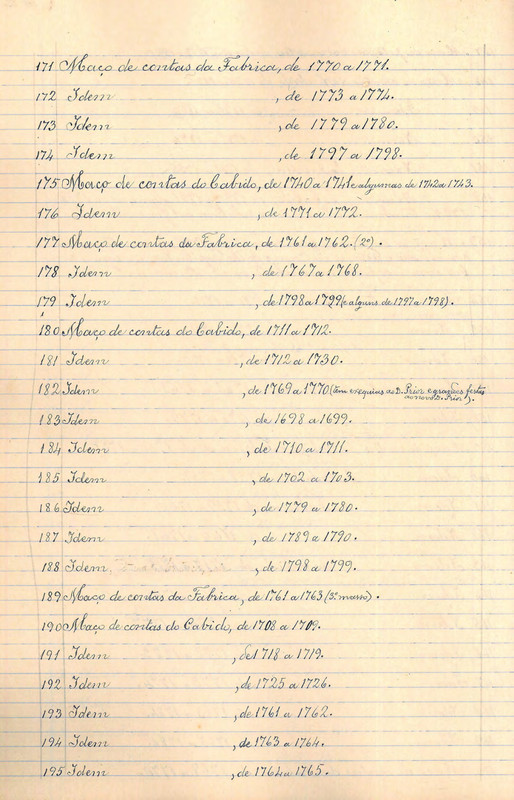 171 Maço de contas da Fabrica, de 1770 a 1771.
172 Idem , de 1773 a 1774.
173 Idem , de 1779 a 1780.
174 Idem , de 1797 a 1798.
175 Maço de contas do Cabido, de 1740 a 1741 e algumas de 1742 a 1743.
176 Idem , de 1771 a 1772.
177 Maço de contas da Fabrica, de 1761 a 1762. (2º)
178 Idem , de 1767 a 1768.
179 Idem , de 1798 a 1799 (e alguns de 1797 a 1798).
180 Maço de contas do Cabido, de 1711 a 1712.
181 Idem , de 1712 a 1730.
182 Idem , de 1769 a 1770 (tem exequias ao D. Prior e festas
ao novo D. Prior).
183 Idem , de 1698 a 1699.
184 Idem , de 1710 a 1711.
185 Idem , de 1702 a 1703.
186 Idem , de 1779 a 1780.
187 Idem , de 1789 a 1790.
188 Idem , de 1798 a 1799.
189 Maço de contas da Fabrica, de 1761 a 1763 (3º masso).
190 Maço de contas do Cabido, de 1708 a 1709.
191 Idem , de 1718 a 1719.
192 Idem , de 1725 a 1726.
193 Idem , de 1761 a 1762.
194 Idem , de 1763 a 1764.
195 Idem , de 1764 a 1765.